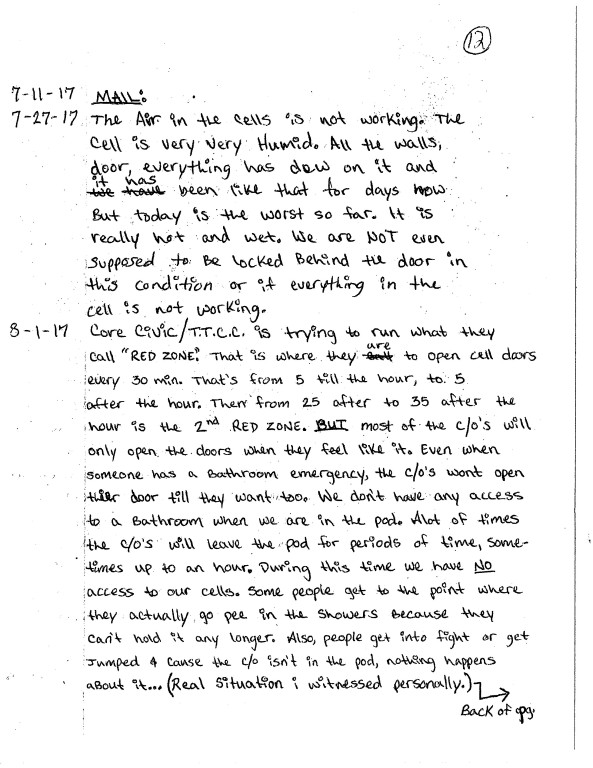 12
7-11-17 MAIL:
7-27-17 The Air in the cells is not working. The
cell is very very Humid. All the walls,
door, everything has dew on it and
it has been like that for days now
But today is the worst so far. It is
really hot and wet. We are NOT even
supposed to be locked Behind the door in
this condition or if everything in the
cell is not working.
8-1-17 Core Civic/T.T.C.C. is trying to run what they
call "RED ZONE." That is where they are to open cell doors
every 30 min. That's from 5 till the hour, to 5
after the hour. Then from 25 after to 35 after the
hour is the 2nd RED ZONE. BUT most of the c/o's will
only open the doors when they feel like it. Even when
someone has a Bathroom emergency, the c/o's wont open
thier door till they want too. We don't have any access
to a Bathroom when we are in the pod. Alot of times
the c/o's will leave the pod for periods of time, some-
-times up to an hour. During this time we have NO
access to our cells. Some people get to the point where
they actually go pee in the showers Because they
can't hold it any longer. Also, people get into fight or get
Jumped & cause the c/o isn't in the pod, nothing happens
about it... (Real Situation i witnessed personally.)
Back of pg.